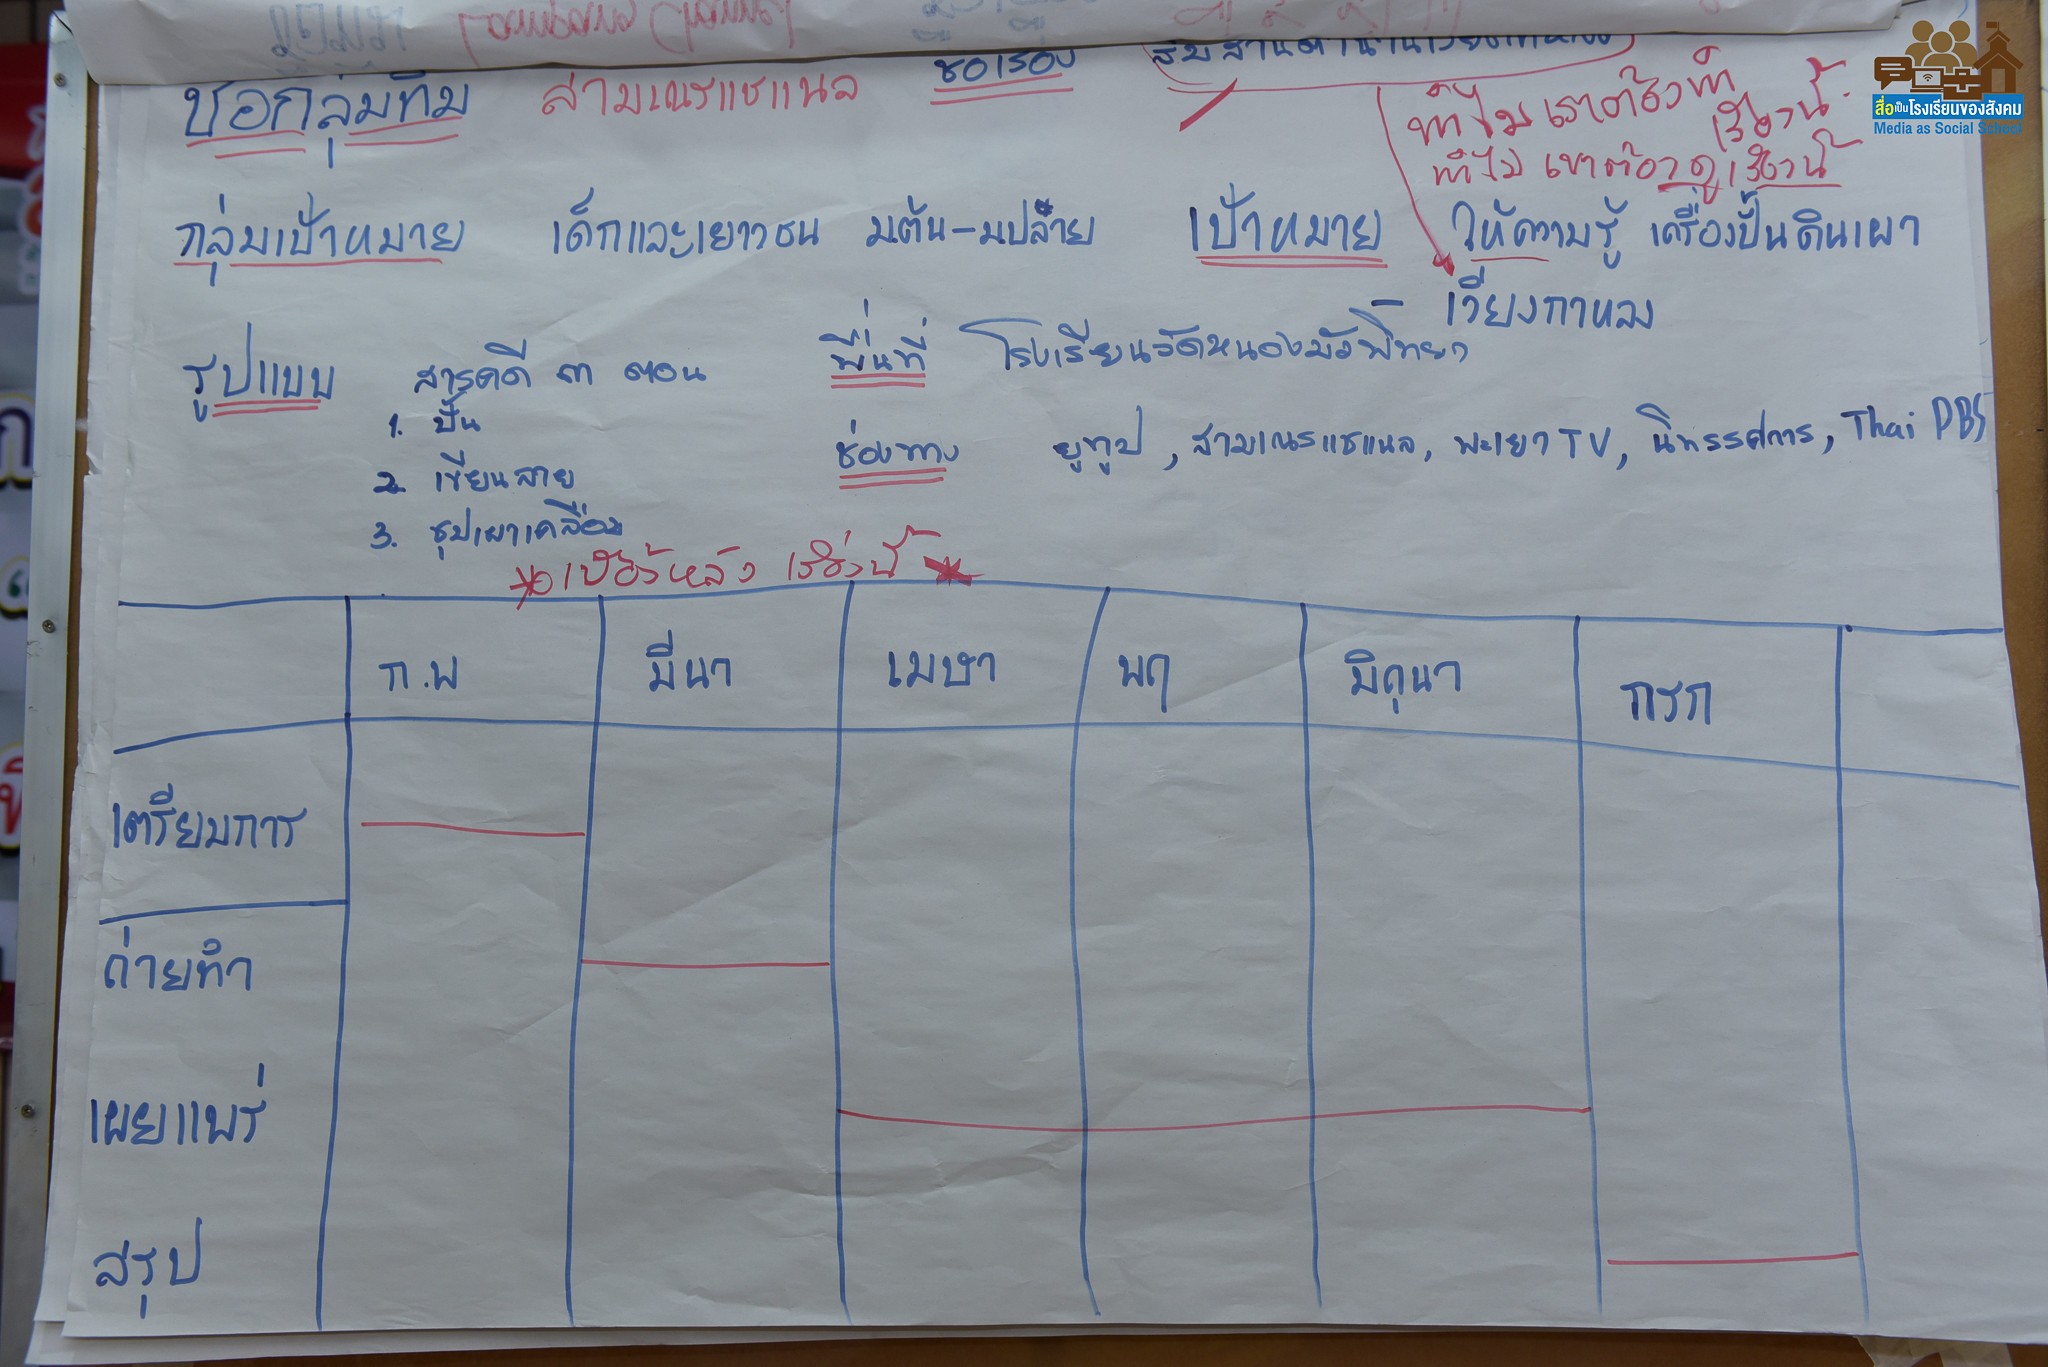 ชื่อกลุ่มทีม สามเณรแชแนล ชื่อเรื่อง
ทำไม เราต้องทำ
เรื่องนี้
ทำไม เขาต้องดูเรื่องนี้
สื่อเป็นโรงเรียนของสังคม
Media as Social School
กลุ่มเป้าหมาย เด็กและเยาวชน มต้น-มปลาย เป้าหมาย ให้ความรู้ เครื่องปั้นดินเผา
เวียงกาหลง
รูปแบบ สารคดี ๓ ตอน พื้นที่ โรงเรียนวัดหนองบัวพิทยา
1. ปั้น
ช่องทาง ยูทูป, สามเณรแชแนล, พะเยา TV, นิทรรศการ, Thai PBS
2 เขียนลาย
3. ชุปเผาเคลือบ
เบื้องหลัง เรื่องนี้
ก.พ มีนา เมษา พฤ มิถุนา กรก
เตรียมการ
ถ่ายทำ
เผยแพร่
สรุป